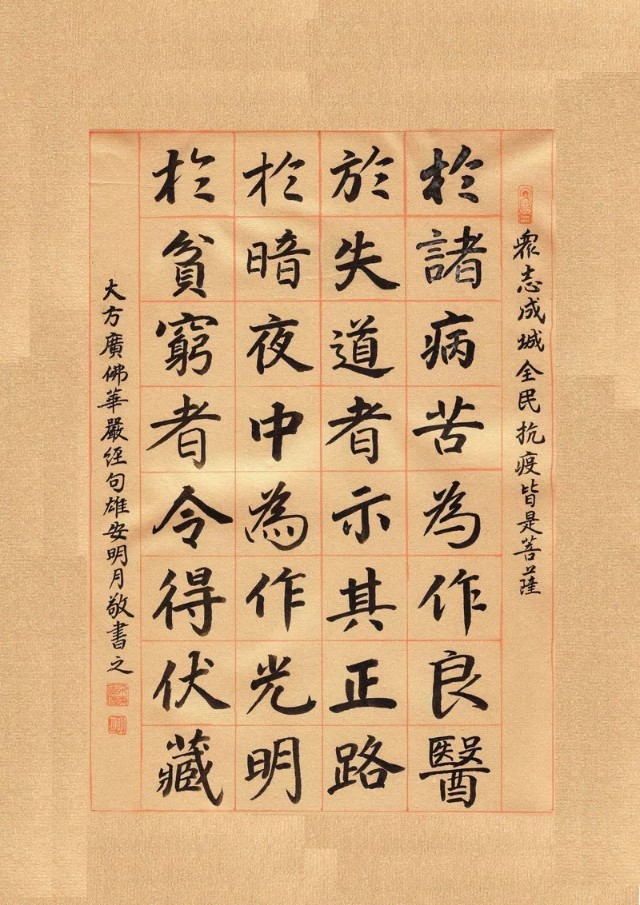 眾志成城全民抗疫皆是菩薩
於諸病苦為作良醫
於失道者示其正路
於暗夜中為作光明
於貧窮者令得伏藏
大方廣佛華嚴經句雄安明月敬書之